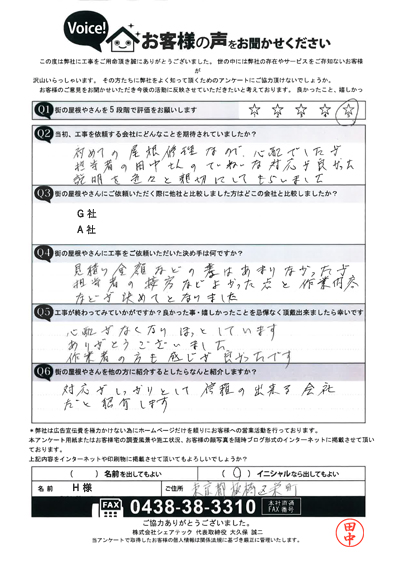 Voice!
お客様の声をお聞かせください
この度は弊社に工事をご用命頂き誠にありがとうございました。 世の中には弊社の存在やサービスをご存知ないお客様が
沢山いらっしゃいます。 その方たちに弊社をよく知って頂くためのアンケートにご協力頂けないでしょうか。
お客様のご意見をお聞かせいただき今後の活動に反映させていただきたいと考えております。 良かったこと、嬉しかっ
Q1 街の屋根やさんを5段階で評価をお願いします
☆ ☆ ☆ ☆ ☆
Q2 当初、工事を依頼する会社にどんなことを期待されていましたか?
初めての屋根修理なので、心配でしたが
担当者の田中さんのていねいな対応が良かった
説明を色々と親切にしてもらいました
Q3 街の屋根やさんにご依頼いただく際に他社と比較しました方はどこの会社と比較しましたか?
G社
A社
Q4 街の屋根やさんに工事をご依頼いただいた決め手は何ですか?
見積り金額などの差はあまりなかったが
担当者の接方などよかった点と作業内容
などが決めてとなりました
Q5 工事が終わってみていかがですか?良かった事・嬉しかったことを忌憚なく頂戴出来ましたら幸いです
心配がなくなりほっとしています
ありがとうございました。
作業者の方も感じが良かったです
Q6 街の屋根やさんを他の方に紹介するとしたらなんと紹介しますか?
対応がしっかりとして信頼の出来る会社
だと紹介します
*弊社は広告宣伝費を極力かけない為にホームページだけを頼りにお客様への営業活動を行っております。
本アンケート用紙またはお客様宅の調査風景や施工状況、お客様の顔写真を随時ブログ形式でのインターネットに掲載させて頂いております。
上記内容をインターネットや印刷物に掲載させて頂いてもよろしいでしょうか?
( ) 名前を出してもよい (○) イニシャルなら出してもよい
名前 H様 ご住所 東京都板橋区栄町
FAX 0438-38-3310 本社直通FAX番号
ご協力ありがとうございました。
株式会社シェアテック 代表取締役 大久保 誠二
当アンケートで取得したお客様の個人情報は関係法規に基づき厳正に管理いたします。
田中